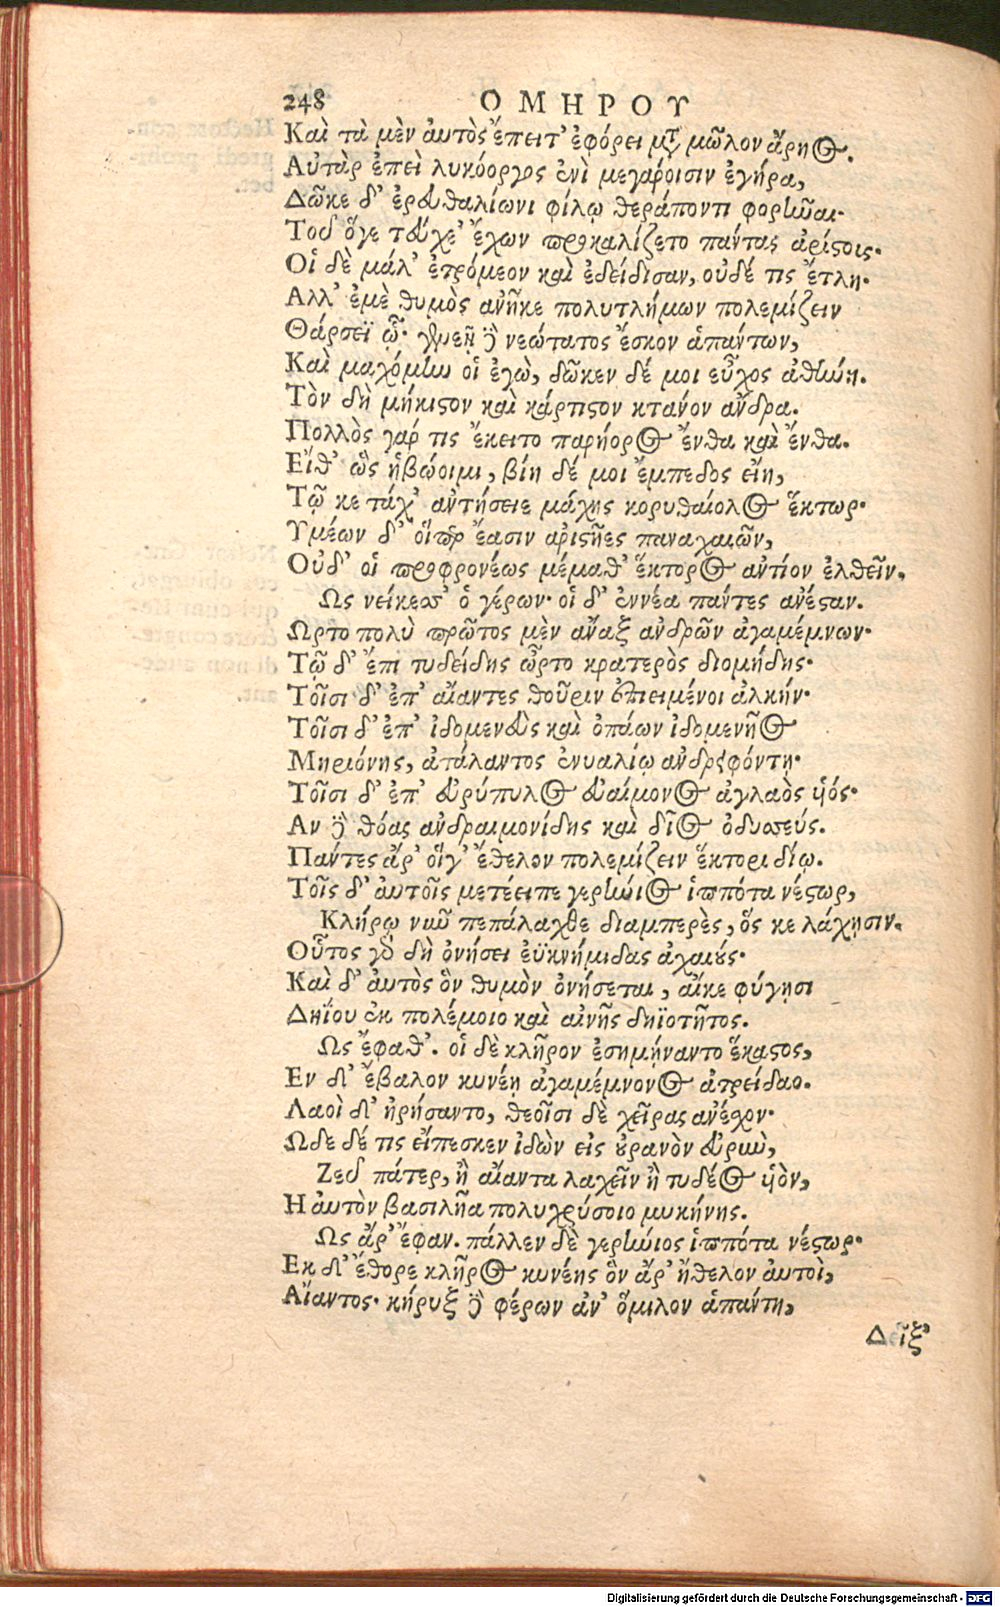 248 ΟΜΗΡΟΥ
Καὶ τὰ μὲν αὐτὸς ἔπειτ' ἐφόρει μτ μῶλον ἄρηος.
Αὐτὰρ ἐπεὶ λυκόοργος ἐνὶ μεγάροισιν ἐγήρα,
Δῶκε δ' ἐρευθαλίωνι φίλῳ θεράποντι φορῆναι·
Τοῦ ὅγε τεύχε' ἔχων προκαλίζετο παντας ἀρίστοις.
Οἱ δὲ μάλ' ἐτρόμεον καὶ ἐδείδισαν, οὐδέ τις ἔτλη·
Αλλ' ἐμὲ θυμὸς ἀνῆκε πολυτλήμων πολεμίζειν
Θάρσεϊ ᾧ· γενεῇ δὲ νεώτατος ἔσκον ἁπάντων,
Καὶ μαχόμην οἱ ἐγὼ, δῶκεν δέ μοι εὖχος ἀθήνη.
Τὸν δὴ μήκιστον καὶ κάρτιστον κτάνον ἄνδρα.
Πολλὸς γάρ τις ἔκειτο παρήορος ἔνθα καὶ ἔνθα.
Εἴθ' ὣς ἡβώοιμι, βίη δέ μοι ἔμπεδος εἴη,
Τῷ κε τάχ' ἀντήσειε μάχης κορυθαίολος ἕκτωρ·
Υμέων δ' οἵπερ ἔασιν ἀριστῆες παναχαιῶν,
Οὐδ' οἱ προφρονέως μέμαθ' ἕκτορος ἀντίον ἐλθεῖν.
Ως νείκεσσ' ὁ γέρων· οἱ δ' ἐννέα πάντες ἀνέσταν.
Ωρτο πολὺ πρῶτος μὲν ἄναξ ἀνδρῶν ἀγαμέμνων·
Τῷ δ' ἔπι τυδείδης ὦρτο κρατερὸς διομήδης·
Τοῖσι δ' ἐπ' αἴαντες θοῦριν ἐπιειμένοι ἀλκήν·
Τοῖσι δ' ἐπ' ἰδομενεὺς καὶ ὀπάων ἰδομενῆος
Μηριόνης, ἀτάλαντος ἐνυαλίῳ ἀνδρειφόντῃ·
Τοῖσι δ' ἐπ' εὐρύπυλος εὐαίμονος ἀγλαὸς υἱός·
Αν δὲ θόας ἀνδραιμονίδης καὶ δῖος ὀδυσσεύς.
Πάντες ἄρ' οἵγ' ἔθελον πολεμίζειν ἕκτορι δίῳ.
Τοῖς δ' αὐτοῖς μετέειπε γερήνιος ἱππότα νέστωρ,
Κλήρῳ νῦν πεπάλαχθε διαμπερὲς, ὅς κε λάχῃσιν.
Οὗτος γὰρ δὴ ὀνήσει ἐϋκνήμιδας ἀχαιούς·
Καὶ δ' αὐτὸς ὃν θυμὸν ὀνήσεται, αἴκε φύγῃσι
Δηΐου ἐκ πολέμοιο καὶ αἰνῆς δηϊοτῆτος.
Ως ἔφαθ'. οἱ δὲ κλῆρον ἐσημήναντο ἕκαστος,
Εν δ' ἔβαλον κυνέῃ ἀγαμέμνονος ἀτρείδαο.
Λαοὶ δ' ἠρήσαντο, θεοῖσι δὲ χεῖρας ἀνέσχον·
Ωδε δέ τις εἴπεσκεν ἰδὼν εἰς οὐρανὸν εὐρὺν,
Ζεῦ πάτερ, ἢ αἴαντα λαχεῖν ἢ τυδέος υἱὸν,
Η αὐτὸν βασιλῆα πολυχρύσοιο μυκήνης.
Ως ἄρ' ἔφαν. πάλλεν δὲ γερήνιος ἱππότα νέστωρ·
Εκ δ' ἔθορε κλῆρος κυνέης ὃν ἄρ' ἤθελον αὐτοὶ,
Αἴαντος· κήρυξ δὲ φέρων ἀν' ὅμιλον ἁπάντη,
Δεῖξ'
Digitalisierung gefördert durch die Deutsche Forschungsgemeinschaft - DFG